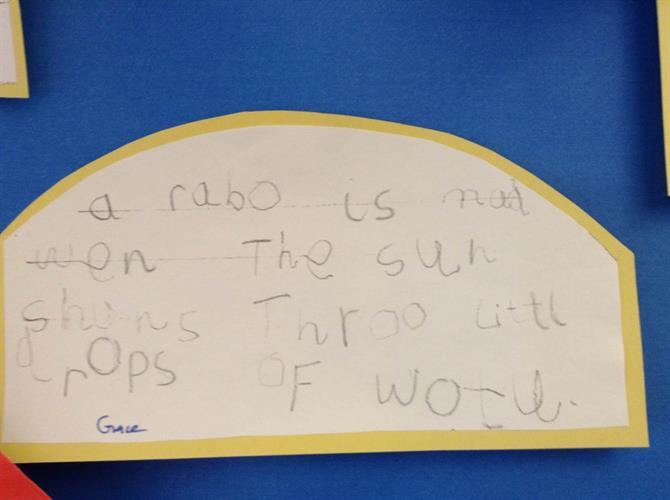 a rabo is mad
wen The sun
shins Throo Little
drops OF wote.
Grace